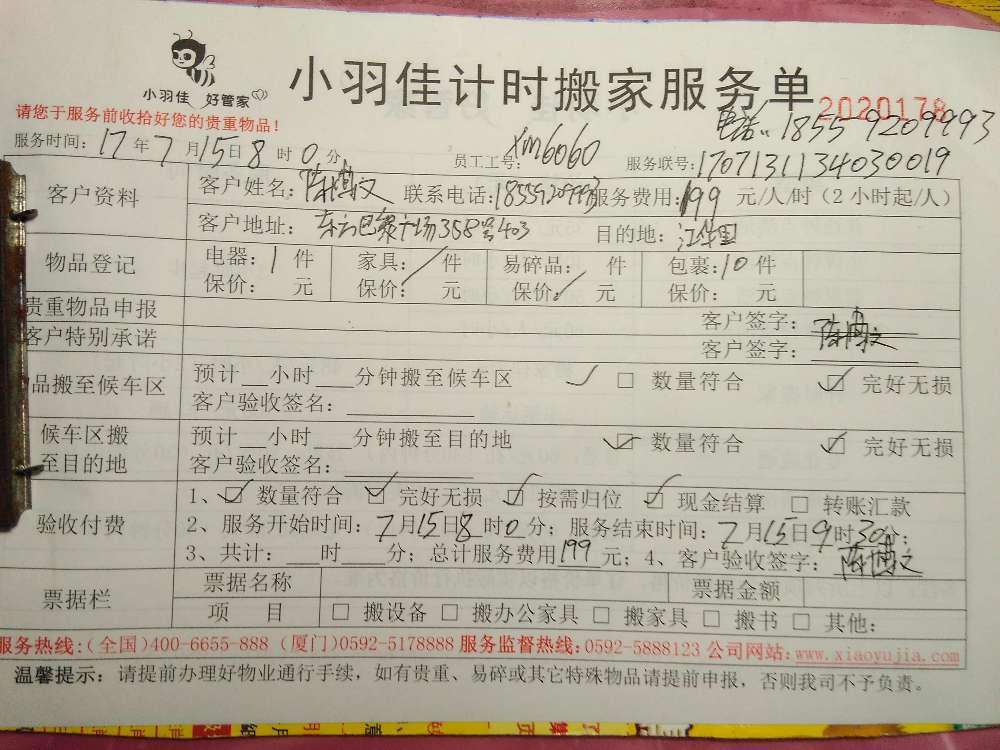 小羽佳 好管家
小羽佳计时搬家服务单
2020178
请您于服务前收拾好您的贵重物品!
电话:18559209993
服务时间:17年7月15日8时0分 员工工号:XM6060 服务联号:1707131134030019
客户资料 客户姓名:陈博文 联系电话:18559209993 服务费用:199元/人/时(2小时起/人)
客户地址: 358号403 目的地:江华里
物品登记 电器:1件 家具:/件 易碎品: 件 包裹:10件
保价: 元 保价: 元 保价: 元 保价: 元
贵重物品申报 客户签字:
客户特别承诺 客户签字:陈博文
品搬至候车区 预计__小时___分钟搬至候车区 ✓ □ 数量符合 ☑ 完好无损
客户验收签名:
候车区搬至目的地 预计__小时___分钟搬至目的地 ☑ 数量符合 ☑ 完好无损
客户验收签名:
验收付费 1、☑ 数量符合 ☑ 完好无损 ☑ 按需归位 ☑ 现金结算 □ 转账汇款
2、服务开始时间:7月15日8时0分;服务结束时间:7月15日9时30分;
3、共计:___时___分;总计服务费用199元;4、客户验收签字:陈博文
票据栏 票据名称 票据金额
项 目 □ 搬设备 □ 搬办公家具 □ 搬家具 □ 搬书 □ 其他:
服务热线:(全国)400-6655-888 (厦门)0592-5178888 服务监督热线:0592-5888123 公司网站:www.xiaoyujia.com
温馨提示:请提前办理好物业通行手续,如有贵重、易碎或其它特殊物品请提前申报,否则我司不予负责。